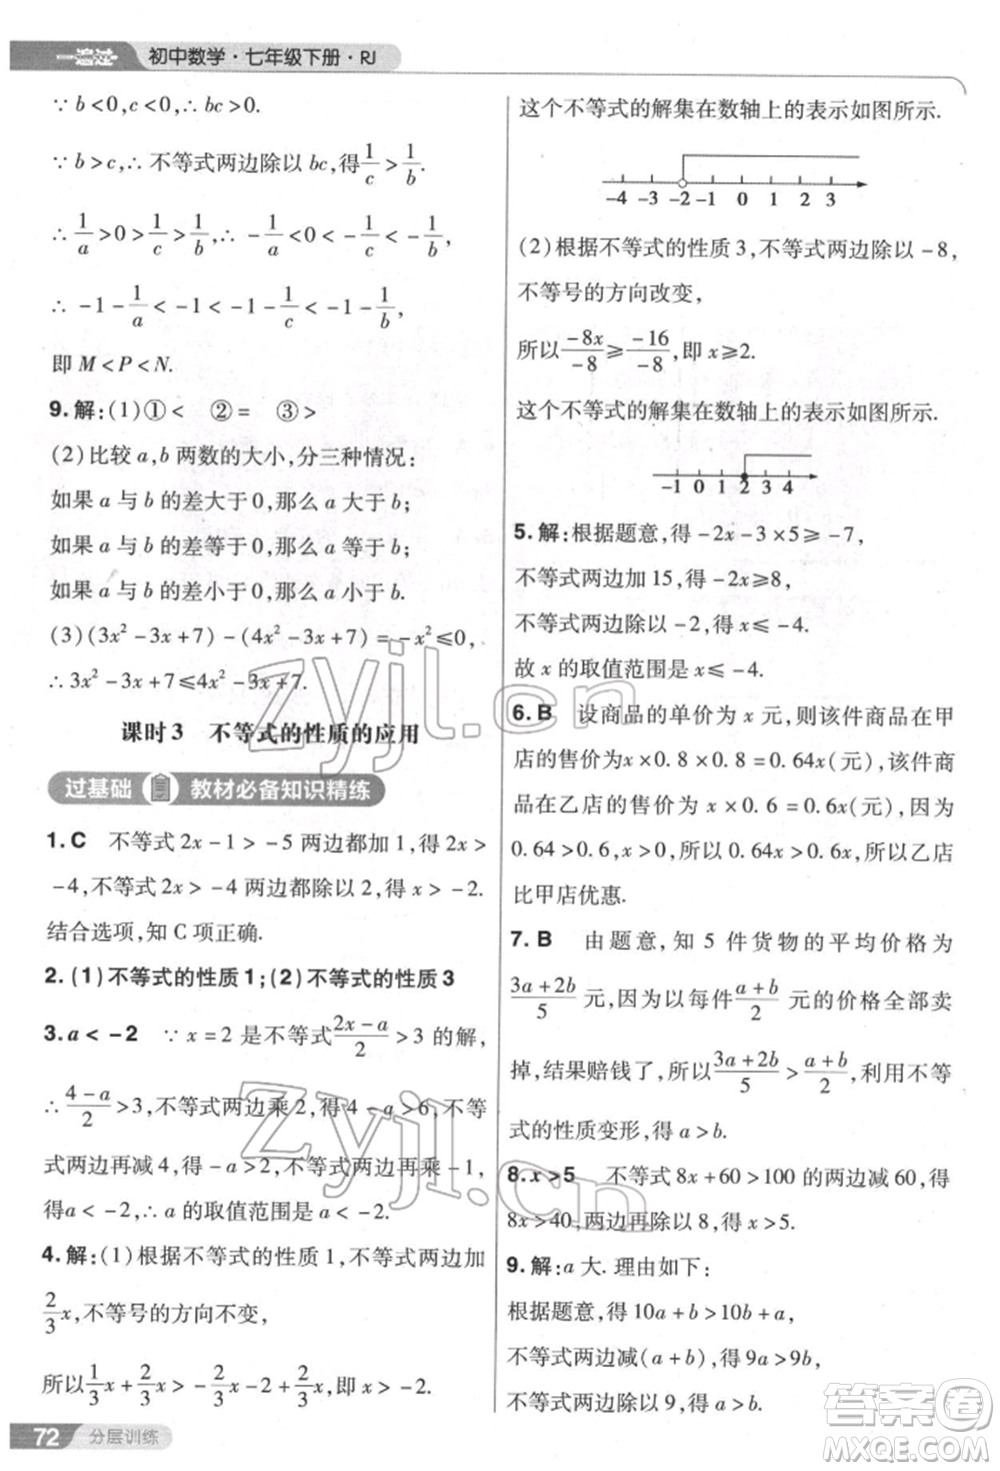 一遍过 初中数学·七年级下册·RJ
∵ b<0,c<0,∴ bc>0.
∵ b>c,∴ 不等式两边除以 bc,得1/c>1/b.
∴ 1/a>0>1/c>1/b,∴ -1/a<-1/c<-1/b,
∴ -1-1/a<-1-1/c<-1-1/b,
即 M<P<N.
9.解:(1)①< ②= ③>
(2)比较 a,b 两数的大小,分三种情况:
如果 a 与 b 的差大于 0,那么 a 大于 b;
如果 a 与 b 的差等于 0,那么 a 等于 b;
如果 a 与 b 的差小于 0,那么 a 小于 b.
(3)(3x²-3x+7)-(4x²-3x+7)=-x²≤0,
∴ 3x²-3x+7≤4x²-3x+7.
课时3 不等式的性质的应用
过基础 教材必备知识精练
1.C 不等式 2x-1>-5 两边都加 1,得 2x>
-4,不等式 2x>-4 两边都除以 2,得 x>-2.
结合选项,知 C 项正确.
2.(1)不等式的性质1;(2)不等式的性质3
3.a<-2 ∵ x=2 是不等式(2x-a)/2>3 的解,
∴ (4-a)/2>3,不等式两边乘 2,得 4-a>6,不等
式两边再减 4,得 -a>2,不等式两边再乘 -1,
得a<-2,∴ a 的取值范围是 a<-2.
4.解:(1)根据不等式的性质 1,不等式两边加
2/3x,不等号的方向不变,
所以1/3x+2/3x>-2/3x+2/3x-2,即 x>-2.
72 分层训练
这个不等式的解集在数轴上的表示如图所示.
-4 -3 -2 -1 0 1 2 3
(2)根据不等式的性质 3,不等式两边除以 -8,
不等号的方向改变,
所以-8x/-8≥-16/-8,即 x≥2.
这个不等式的解集在数轴上的表示如图所示.
-1 0 1 2 3 4
5.解:根据题意,得 -2x-3×5≥-7,
不等式两边加 15,得 -2x≥8,
不等式两边除以 -2,得 x≤-4.
故 x 的取值范围是 x≤-4.
6.B 设商品的单价为 x 元,则该件商品在甲
店的价格为 x×0.8×0.8=0.64x(元),该件商
品在乙店的价格为 x×0.6=0.6x(元),因为
0.64>0.6,x>0,所以 0.64x>0.6x,所以乙店
比甲店优惠.
7.B 由题意,知 5 件货物的平均价格为
(3a+2b)/5 元,因为以每件(a+b)/2 元的价格全部卖
掉,结果赔钱了,所以(3a+2b)/5>(a+b)/2,利用不等
式的性质变形,得 a>b.
8.x>5 不等式 8x+60>100 的两边减60,得
8x>40,两边再除以 8,得 x>5.
9.解:a 大. 理由如下:
根据题意,得 10a+b>10b+a,
不等式两边减(a+b),得 9a>9b,
不等式两边除以 9,得 a>b.
zyjl.cn
zyjl.cn
答案圈
MXQE.COM